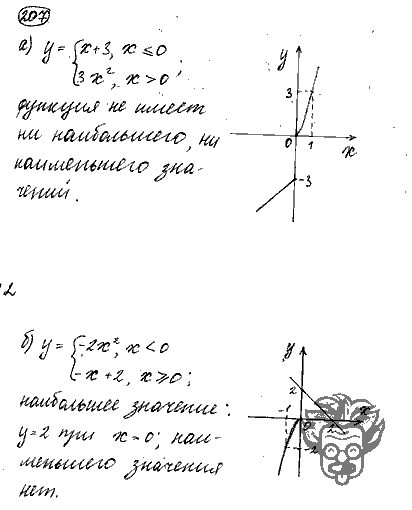 207
а) y = { x+3, x ≤ 0
3x², x > 0 ;
функция не имеет
ни наибольшего, ни
наименьшего зна-
чений.
y
3
0
1
x
-3
б) y = { -2x², x < 0
-x+2, x ≥ 0;
наибольшее значение:
y=2 при x=0; наи-
меньшего значения
нет.
y
2
-1
0
x
-2